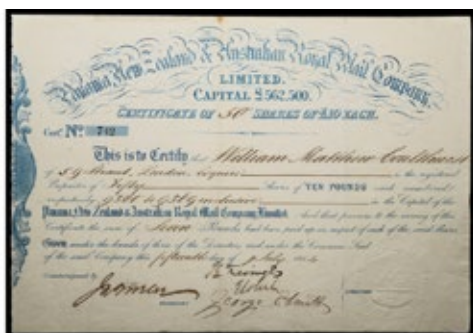 Panama New Zealand & Australian Royal Mail Company,
LIMITED.
CAPITAL £562,500.
CERTIFICATE OF 50 SHARES OF £10 EACH.
Cert. No. 742
This is to Certify that William Matthew
of 59 Strand, London, Esquire is the registered
Proprietor of Fifty Shares of TEN POUNDS each numbered
in the Capital of the
Panama, New Zealand & Australian Royal Mail Company Limited And that previous to the issuing of this
Certificate the sum of Pounds had been paid up in respect of each of the said Shares
Given under the hands of three of the Directors and under the Common Seal
of the said Company this fifteenth day of July
George Smith